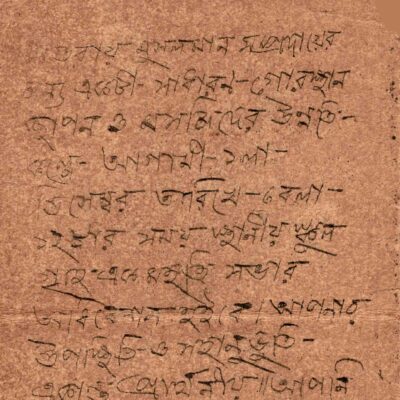 মুসলমান সম্প্রদায়ের
জন্য একটী সাধারণ গোরস্থান
স্থাপন ও মসজিদের উন্নতি-
কল্পে আগামী ১লা
ডিসেম্বর তারিখে বেলা
সময় স্থানীয় স্কুল
গৃহে এক সভার
অধিবেশন হইবে। আপনার
উপস্থিতি ও সহানুভূতি
একান্ত প্রার্থনীয়। আপনি